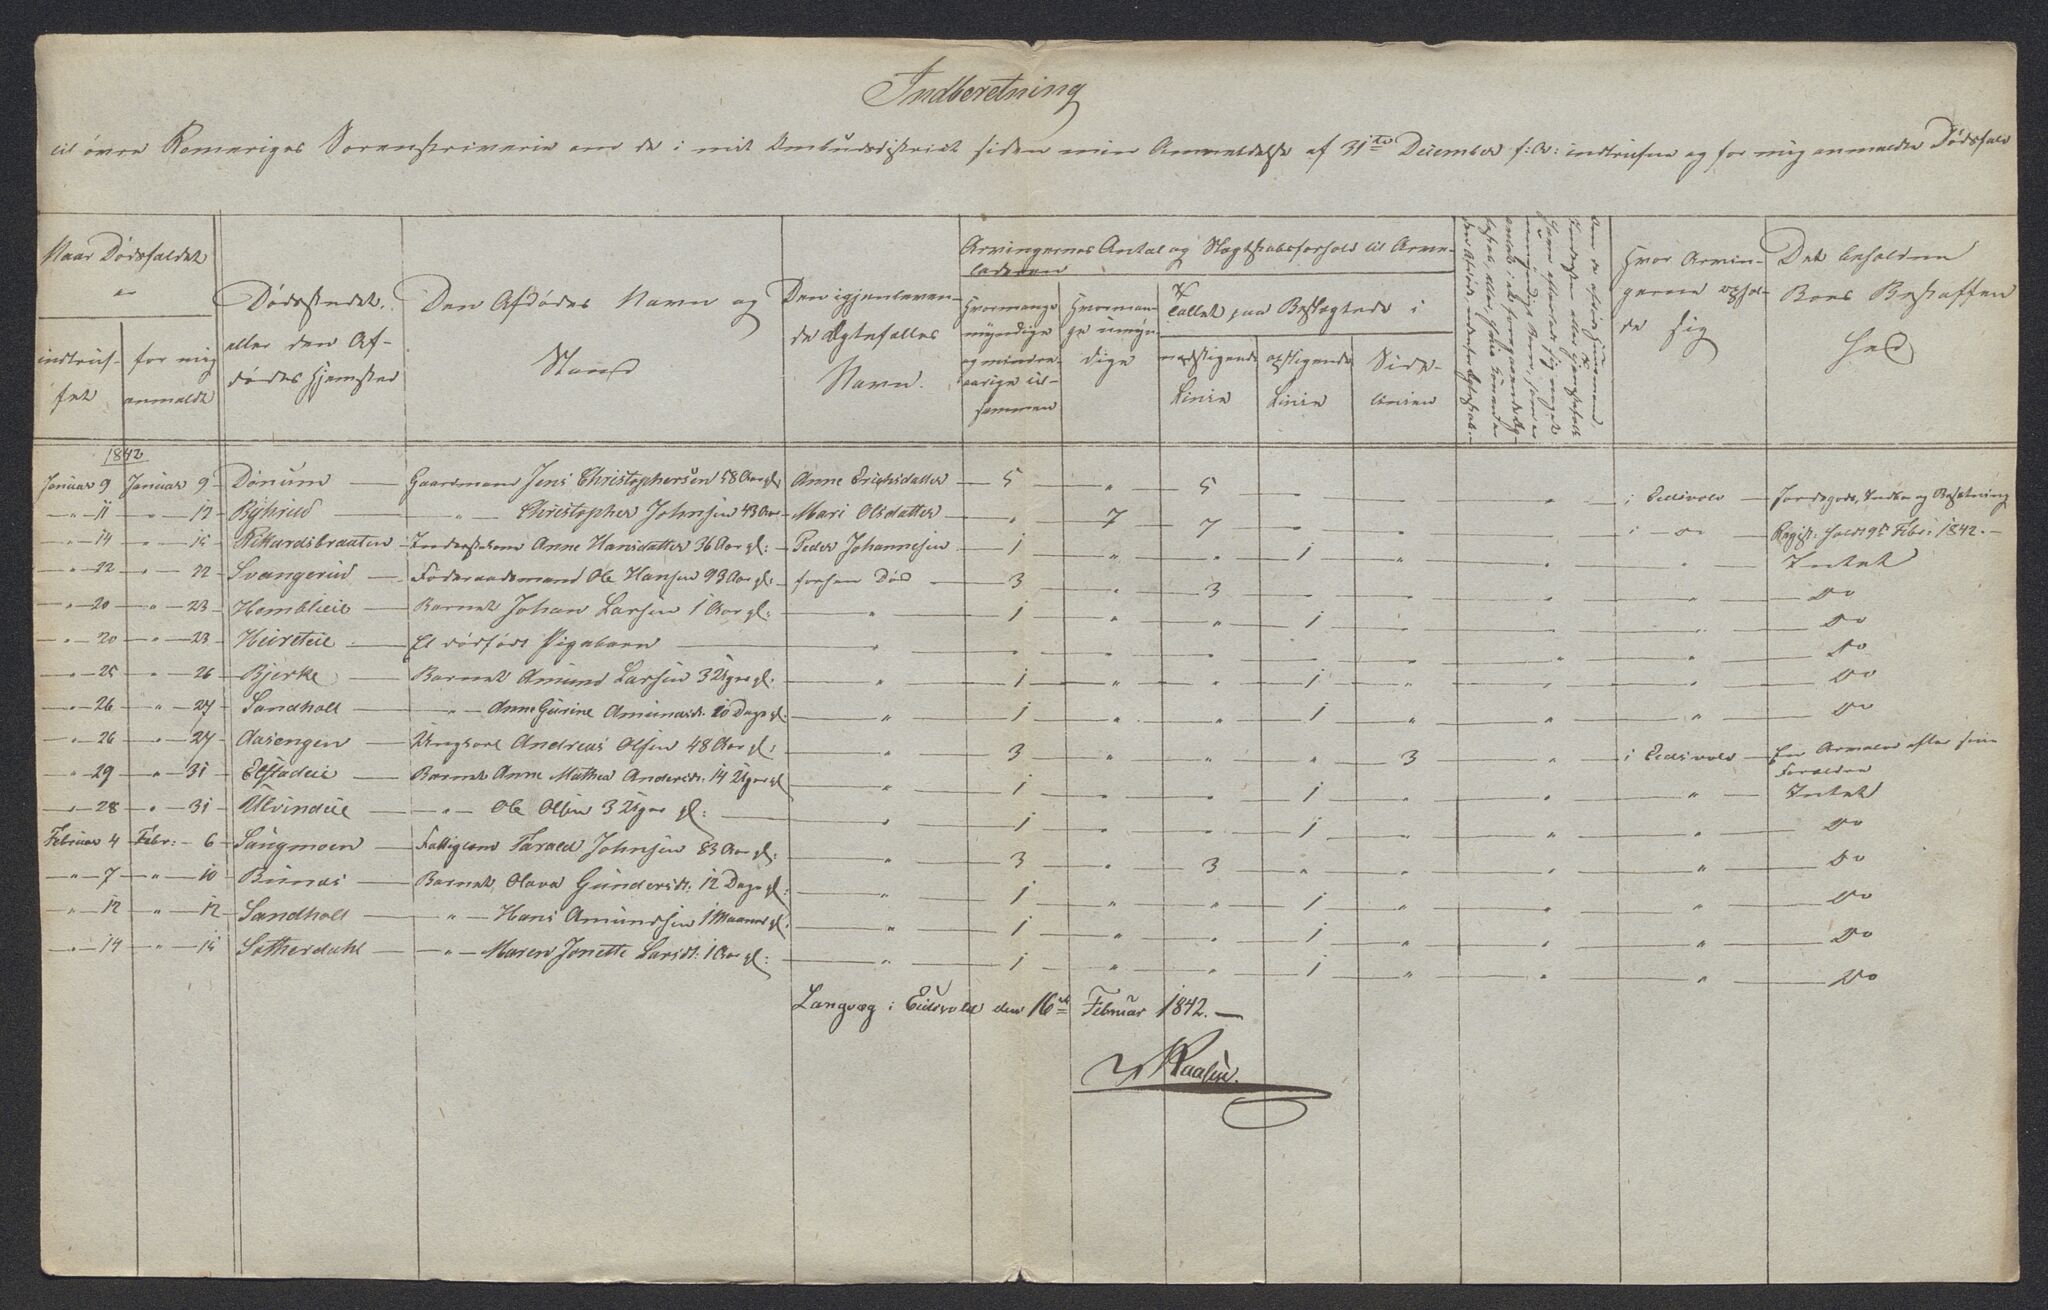 Indberetning
til övre Romeriges Sorenskriverie om de i mit Ombudsdistrict siden min Anmeldelse af 31te December f: A: indtrufne og for mig anmeldte Dødsfald
Naar Dødsfaldet
er
indtruf-
fet
for mig
anmeldt
Dødsstedet
eller den Af-
dødes Hjemsted
Den Afdødes Navn og
Stand
Den igjenleven-
de Ægtefælles
Navn.
Arvingernes Antal og Slægtskabsforhold til Arve-
laderen
Hvormange
myndige
og mindre-
aarige til-
sammen
Hvorman-
ge umyn-
dige
Tallet paa Beslægtede i
nedstigende
Linie
opstigende
Linie
Side-
linien
Hvor Arvin-
gerne ophol-
de sig
Det beholdne
Boes Beskaffen
hed
1842
Januar 9 Januar 9 Dönum Gaardmand Jens Christophersen 58 Aar gl: Anne Erichsdatter 5 " 5 " " " i Eidsvold Jordegods, Indbo og Besætning
" 11 " 12 Byhrud " Christopher Johnsen 43 Aar Mari Olsdatter " 7 7 " " " i do Regist: holdt 9de Febr: 1842.
" 14 " 15 Rikardsbraaten Inderstekone Anne Hansdatter 36 Aar gl: Peder Johannesen 1 " " 1 " " " Intet
" 22 " 22 Svangerud Foderaadsmand Ole Hansen 93 Aar gl: forhen Död 3 " 3 " " " " Do
" 20 " 23 Homblieie Barnet Johan Larsen 1 Aar gl: " 1 " " 1 " " " Do
" 20 " 23 Et dødfødt Pigebarn " " " " " " " " Do
" 25 " 26 Bjerke Barnet Amund Larsen 3 Uger gl. " 1 " " 1 " " " Do
" 26 " 27 Sandholt " Anne Gurine Amundsd: 10 Dage gl: " 1 " " 1 " " " Do
" 26 " 27 Aasengen Ungkarl Andreas Olsen 48 Aar gl: " 3 " " " 3 " i Eidsvold En Arvelod efter sine
Forældre
" 29 " 31 Elstadeie Barnet Anne Mathea Andersd: 14 Uger gl " 1 " " 1 " " " Intet
" 28 " 31 Ulvindeie " Ole Olsen 3 Uger gl: " 1 " " 1 " " " Do
Februar 4 Febr: 6 Saugmoen Fattiglem Tarald Johnsen 83 Aar gl: " 3 " 3 " " " " Do
" 7 " 10 Bunæs Barnet Olava Gundersd: 12 Dage gl: " 1 " " 1 " " " Do
" 12 " 12 Sandholt " Hans Amundsen 1 Maaned gl. " 1 " " 1 " " " Do
" 14 " 15 Sotherdahl " Maren Jonette Larsd: 1 Aar gl: " 1 " " 1 " " " Do
Langvæg i Eidsvold den 16de Februar 1842.
Raasen.